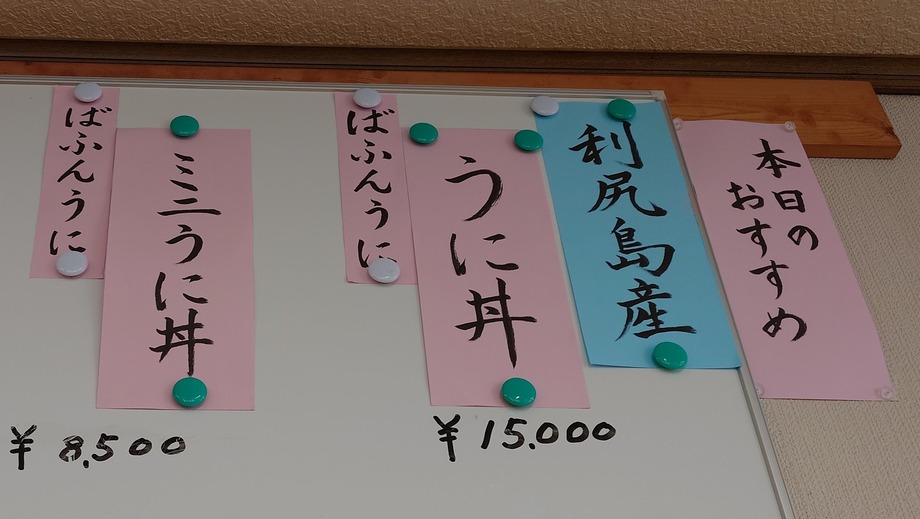 本日の
おすすめ
利尻島産
うに丼
ばふんうに
¥15.000
ミニうに丼
ばふんうに
¥8,500